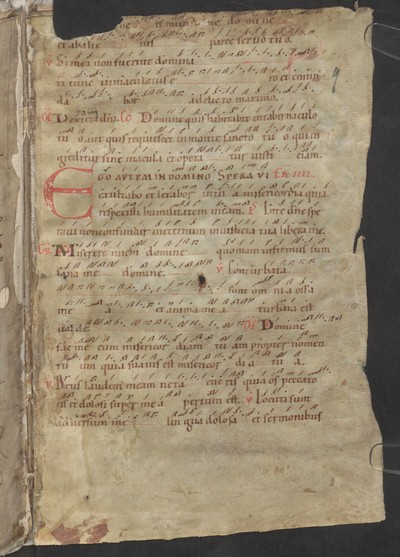 et ab alie nis parce servo tuo.
V Si mei non fuerint domina
ti tunc inmaculatus e ro et emun
da bor a delicto maximo.
Domine quis habitabit in tabernaculo
tuo aut quis requiescet in monte sancto tuo qui in
greditur sine macula et opera tur iusti ciam.
EGO AUTEM IN DOMINO SPERAVI
exultabo et letabor in tua misericordia quia
respexisti humilitatem meam. Ps In te domine spe
raui non confundar in eternum in iusticia tua libera me.
GR Miserere michi domine quoniam infirmus sum
sana me domine. V Conturbata
sunt omnia ossa
me a et anima mea turbata est
ual de. Domine
fac me cum misericor diam tuam propter nomen
tu um quia suauis est misericor dia tu a.
V Deus laudem meam ne ta cue ris quia os peccato
ris et dolosi super me a pertum est. V Locuti sunt
aduersum me lin gua dolosa et sermonibus
9